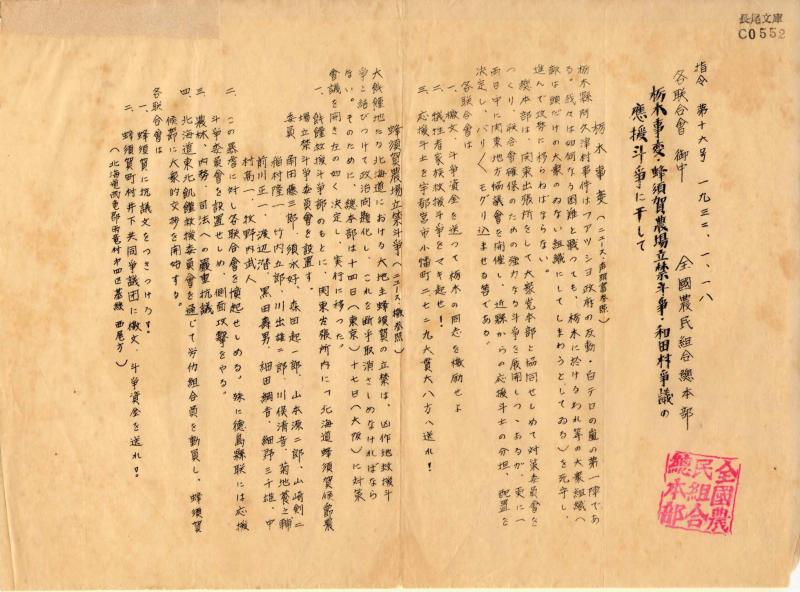 長尾文庫
C0552
指令 第十六号 一九三二、一、一八
各联合會 御中
全國農民組合總本部
栃木事変・蜂須賀農場立禁斗争・和田村爭議の
應援斗争に干して
全國農民組合總本部
栃木事変(ニュース・声明書参照)
栃木縣阿久津村事件はファツシヨ政府の反動・白テロの嵐の第一陣であ
る。我々は如何なる困難と戰つても、栃木に於けるわれ等の大衆組織へ
部は頭だけの大衆のゐない組織にしてしまわうとしてゐる)を死守し、
進んで攻勢に移らねばならない。
總本部は、関東出張所をして大衆党本部と協同せしめて対策委員会を
つくり、联合會確保のための強力なる斗争を展開しつゝあるが、更に一
両日中に関東地方協議會を開催し、近縣からの応援斗士の分担、配置を
決定し、バリバリモグリ込ませる筈である。
各联合會は
一、檄文、斗争資金を送つて栃木の同志を激励せよ
二、犠牲者家族救援斗争をマキ起せ!
三、応援斗士を宇都宮市小幡町二七二九大貫大八方へ送れ!
蜂須賀農場立禁斗争(ニュース、檄参照)
大飢饉地たる北海道における大地主蜂須賀の立禁は、凶作地救援斗
争と結びつけて政治問題化し、これを断乎取消さしめなければなら
ない。そのために、總本部は十四日(東京)十七日(大阪)に対策
會議を開き左の如く決定し、実行に移つた。
一、飢饉救援斗争部のもとに、関東出張所内に「北海道蜂須賀侯爵農
場立禁斗争委員会を設置す。
委員、前田藤三郎、須永好、森田起一郎、山本源二郎、山崎剣二
稲村隆一、竹内五郎、川出雄二郎、川俣清音、菊地養之輔
前川正一、渡辺潜、黒田寿男、細田綱吉、細野三千雄、中
村高一、牧野内武人
二、この暴虐に対し各联合會を憤起せしめる。殊に徳島縣联には応援
斗争委員会を設置せしめ、側面攻撃をやる。
三、農林、内務、司法への嚴重抗議
四、北海道東北飢饉救援委員会を通じて労仂組合員を動員し、蜂須賀
侯爵に大衆的交渉を開始する。
各联合會は
一、蜂須賀に抗議文をつきつけろ!
二、蜂須賀町村井下共同争議団に檄文、斗争資金を送れ!
(北海道雨竜郡雨竜村第四区基線 西尾方)